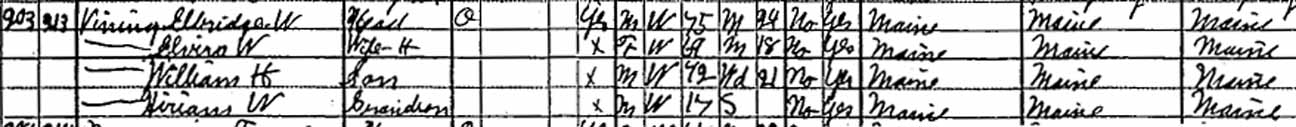 203 213 Vining Elbridge W Head O Yes M W 75 M 24 No Yes Maine Maine Maine
—— Elvira W Wife-H X F W 69 M 18 No Yes Maine Maine Maine
—— William H Son X M W 42 Wd 21 No Yes Maine Maine Maine
—— Hiriam W Grandson X M W 17 S No Yes Maine Maine Maine